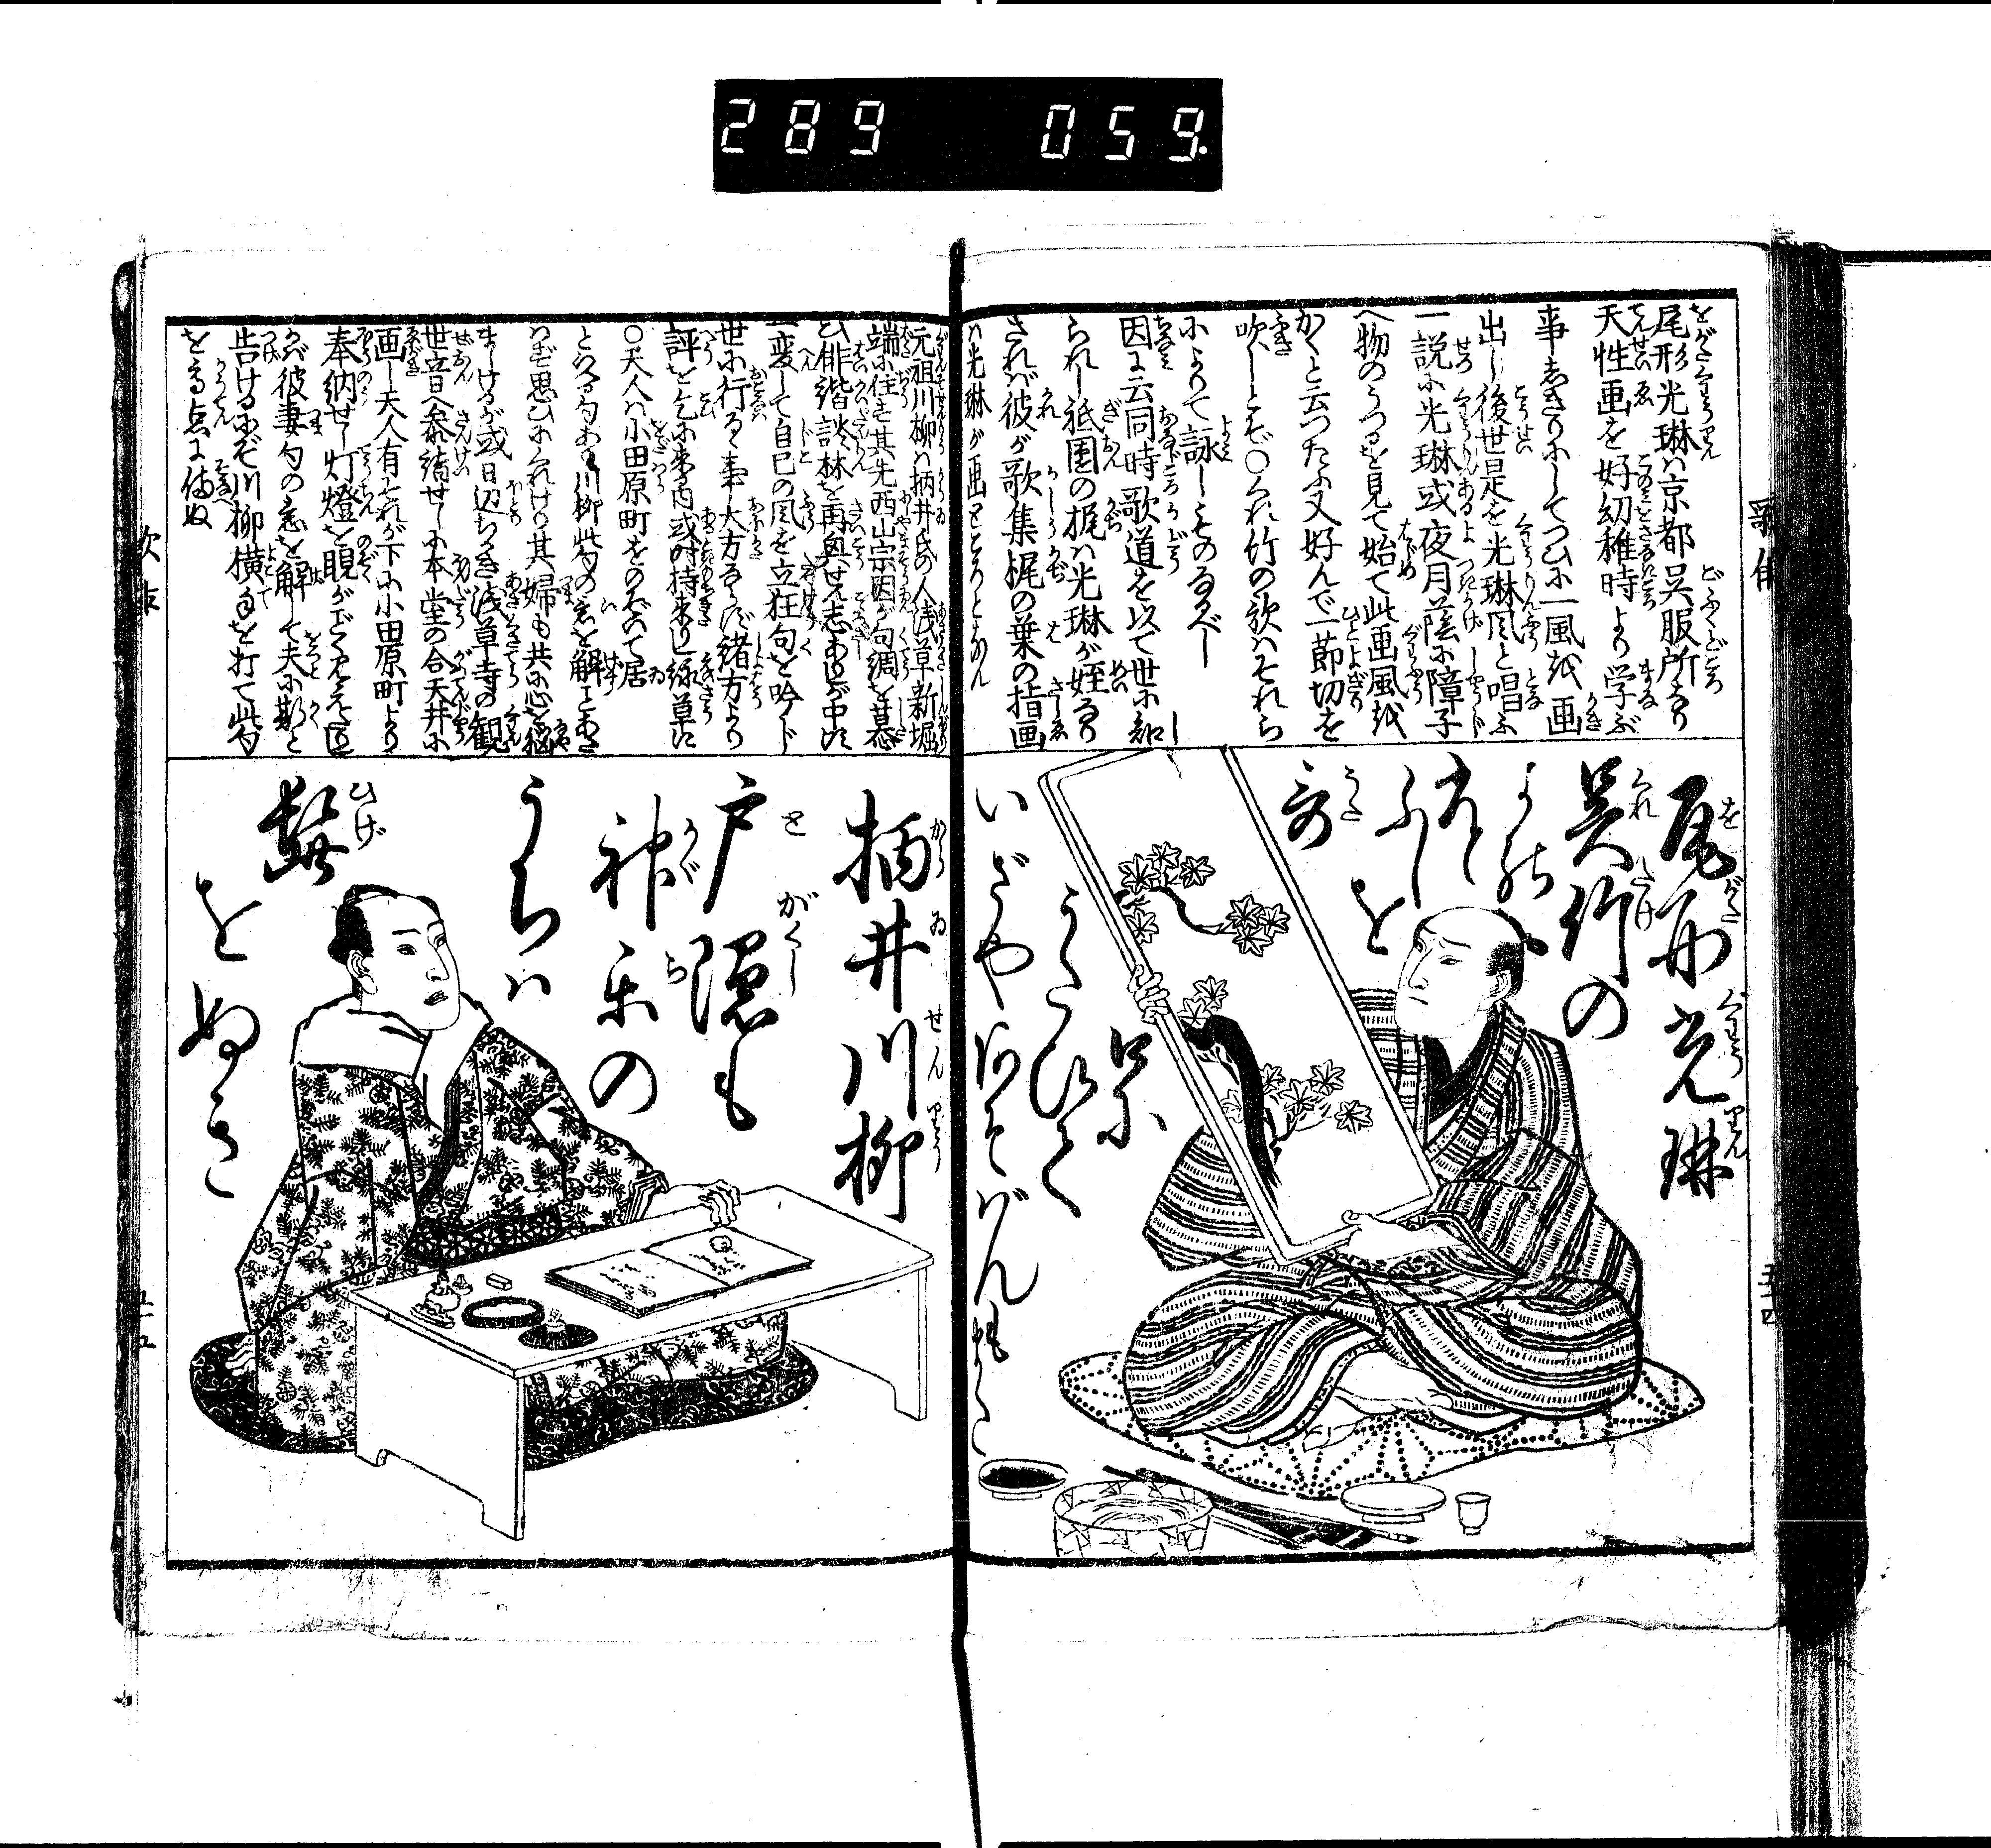 289 059.
尾形光琳ハ京都呉服所なり
天性画を好幼稚時より学ぶ
事しきりにしてつひに一風を画
出し後世是を光琳風と唱ふ
一説に光琳或夜月蔭に障子
へ物のうつるを見て始て此画風を
かくと云つたふ又好んで一節切を
吹しとぞ〇くれ竹の歌ハそれら
によりて詠しものなるべし
因に云同時歌道を以て世に知
られし祇園の梶ハ光琳が姪なり
されバ彼が歌集梶の葉の指画
ハ光琳が画るところとなん
尾形光琳
呉竹の
よの
ふしを
いざや
元祖川柳ハ柄井氏の人浅草新堀
端に住す其先西山宗因が句調を慕
ひ俳諧談林を再興せん志ありしが中比
一変して自己の風を立狂句を吟じ
世に行るゝ事大方ならバ諸方より
評を乞に来る内或時持来りし詠草に
〇天人ハ小田原町をのぞいて居
といへる句あり川柳此句の意を解しあた
はず思ひにくれけり其婦も共に心を悩
ましけるが或日辺ちかき浅草寺の観
世音へ参詣せしに本堂の合天井に
画し天人有それが下に小田原町より
奉納せし灯燈を覗がごとく見えたり
かバ彼妻句の意を解して夫に斯と
告けるにぞ川柳横手を打て此句
を高点に備ぬ
柄井川柳
戸隠も
神楽の
うちハ
髭
をぬき